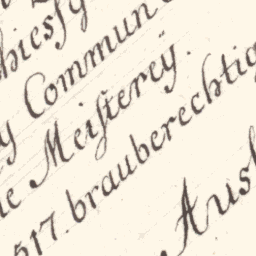 hiesſg
y Commun
e Meiſterey.
517. brauberechtig
Ausſ